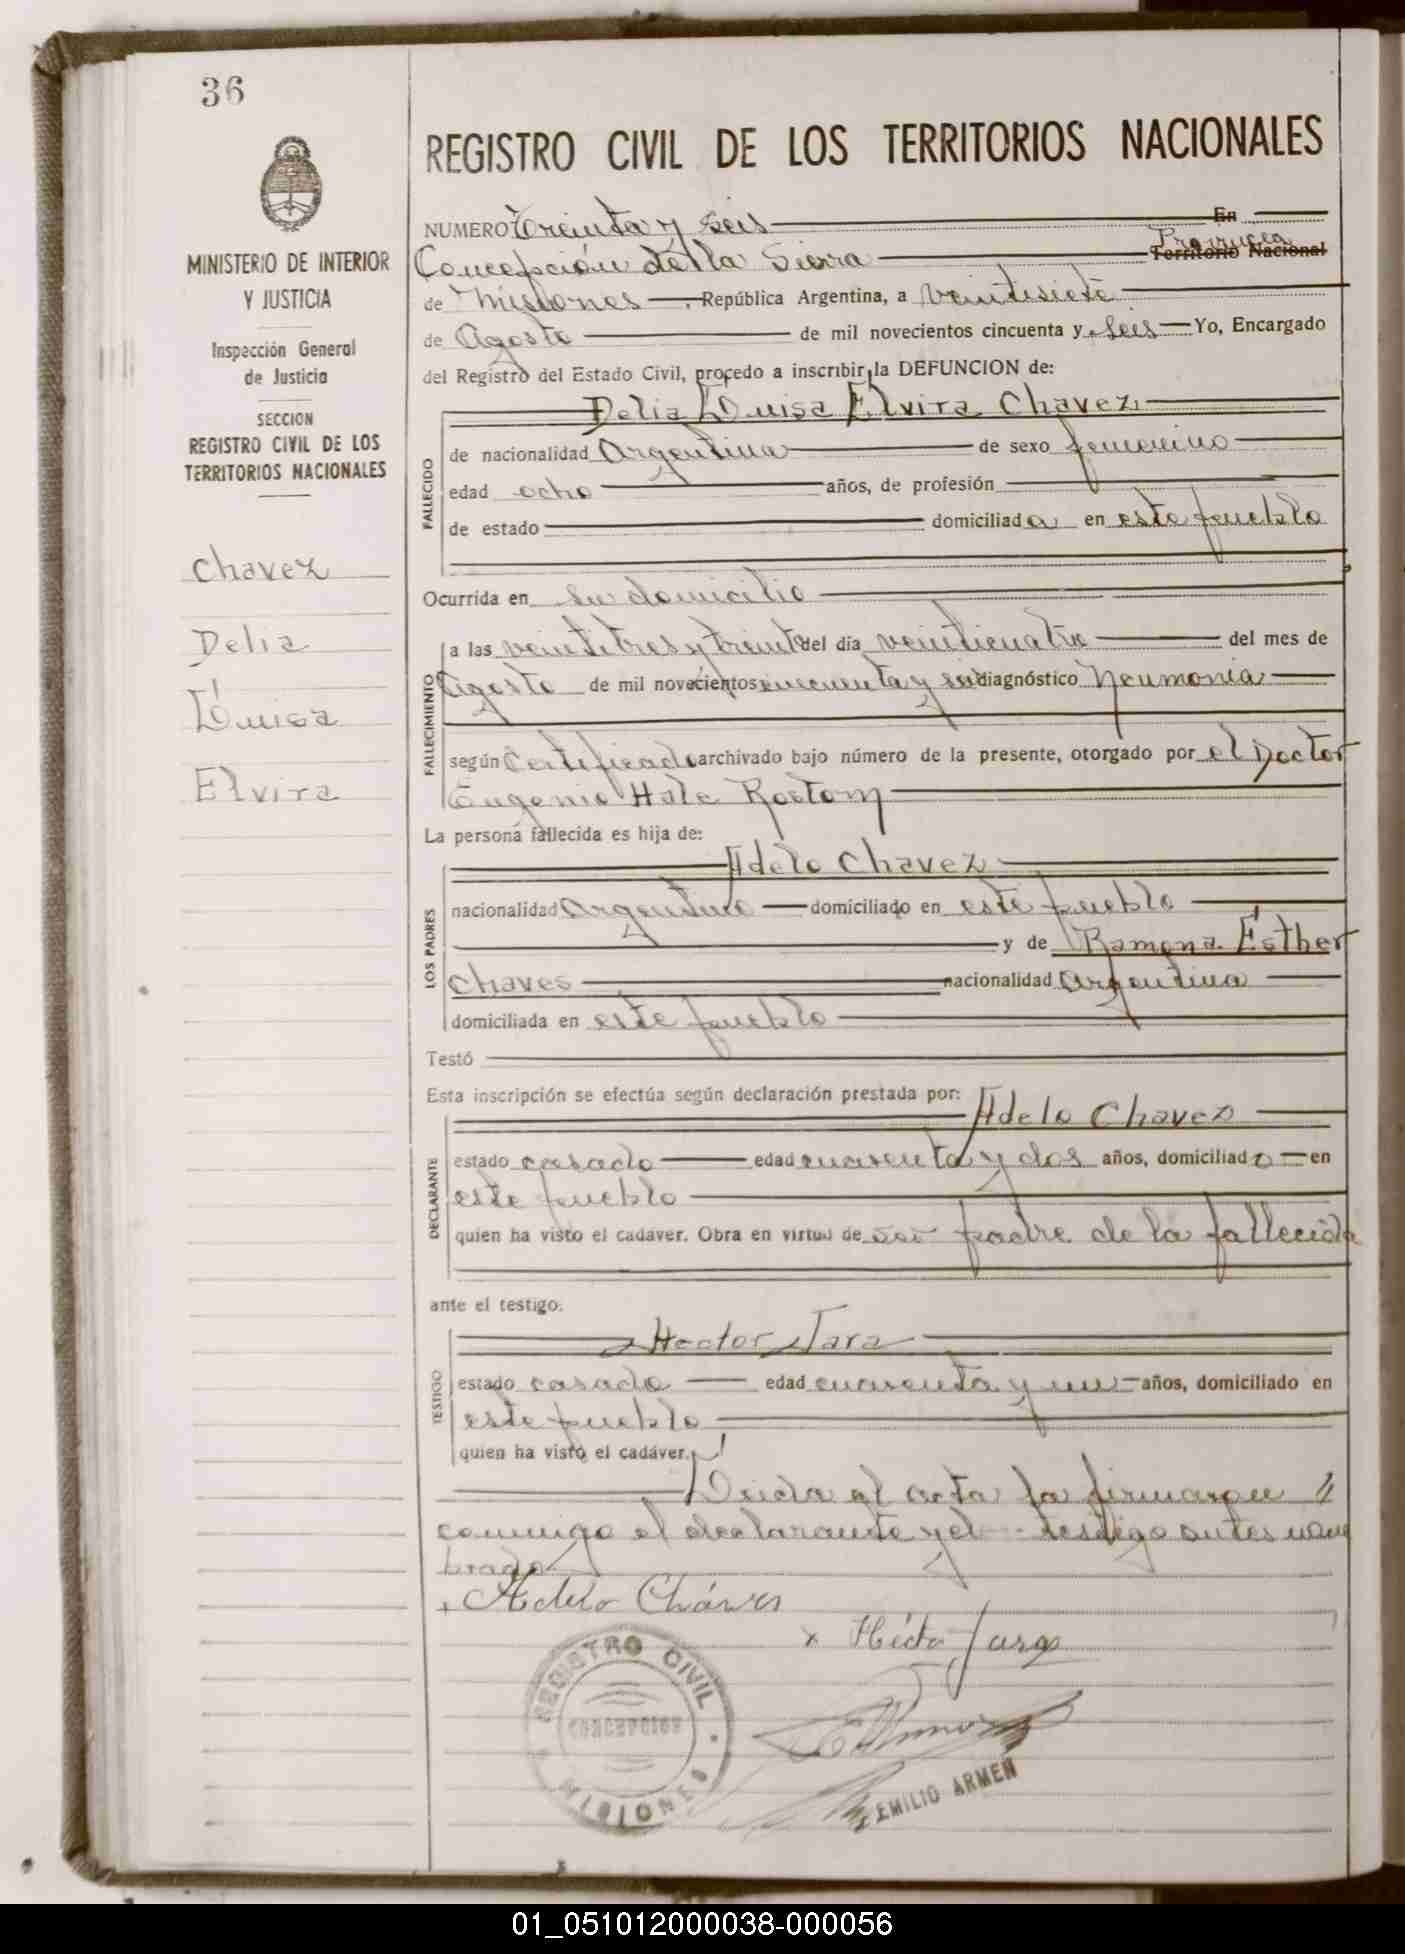 36
MINISTERIO DE INTERIOR
Y JUSTICIA
Inspección General
de Justicia
SECCION
REGISTRO CIVIL DE LOS
TERRITORIOS NACIONALES
Chavez
Delia
Luisa
Elvira
REGISTRO CIVIL DE LOS TERRITORIOS NACIONALES
NUMERO Treinta y seis En
Concepción de la Sierra Provincia Territorio Nacional
de Misiones República Argentina, a veintisiete
de Agosto de mil novecientos cincuenta y seis Yo, Encargado
del Registro del Estado Civil, procedo a inscribir la DEFUNCION de:
Delia Luisa Elvira Chavez
FALLECIDO
de nacionalidad Argentina de sexo femenino
edad ocho años, de profesión
de estado domiciliada en este pueblo
Ocurrida en su domicilio
FALLECIMIENTO
a las veintitres y treinta del día veinticuatro del mes de
Agosto de mil novecientos cincuenta y seis diagnóstico Neumonia
según Certificado archivado bajo número de la presente, otorgado por el Doctor
Eugenio Hale Rostom
La persona fallecida es hija de:
LOS PADRES
Adelo Chavez
nacionalidad Argentino domiciliado en este pueblo
y de Ramona Esther
Chaves nacionalidad Argentina
domiciliada en este pueblo
Testó
Esta inscripción se efectúa según declaración prestada por:
DECLARANTE
Adelo Chavez
estado casado edad cuarenta y dos años, domiciliado en
este pueblo
quien ha visto el cadáver. Obra en virtud de ser padre de la fallecida
ante el testigo:
TESTIGO
Hector Jara
estado casado edad cuarenta y un años, domiciliado en
este pueblo
quien ha visto el cadáver.
Leida el acta la firman
conmigo el declarante y el testigo antes nom
brado
Adelo Cháves
x Héctor Jara
REGISTRO CIVIL
CONCEPCION
MISIONES
EMILIO ARMEN
01_051012000038-000056